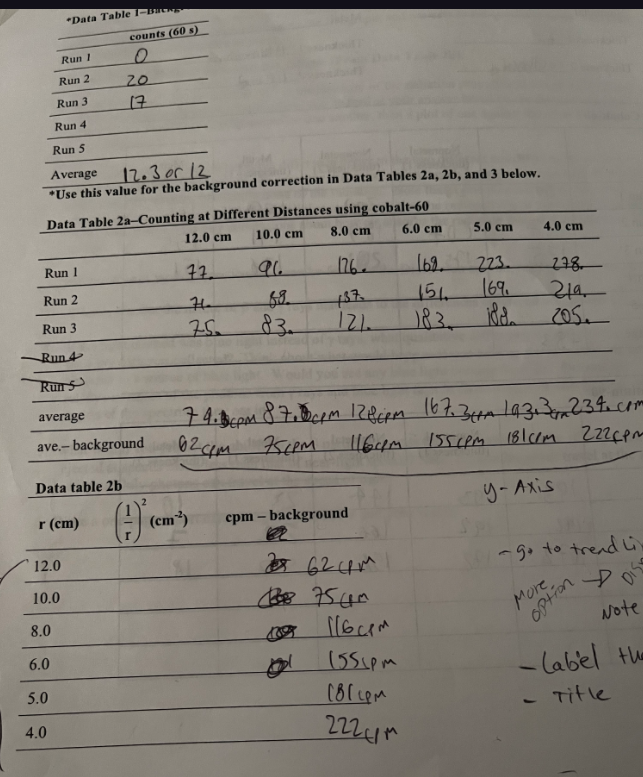 *Data Table 1–Backg
counts (60 s)
Run 1 0
Run 2 20
Run 3 17
Run 4
Run 5
Average 12.3 or 12
*Use this value for the background correction in Data Tables 2a, 2b, and 3 below.
Data Table 2a–Counting at Different Distances using cobalt-60
12.0 cm 10.0 cm 8.0 cm 6.0 cm 5.0 cm 4.0 cm
Run 1 77. 91. 126. 169. 223. 278.
Run 2 71. 89. 137. 151. 169. 219.
Run 3 75. 83. 121. 183. 188. 205.
Run 4
Run 5
average 74.3cpm 87.6cpm 128cpm 167.3cpm 193.3cpm 234.cpm
ave.– background 62cpm 75cpm 116cpm 155cpm 181cpm 222cpm
Data table 2b
y-Axis
r (cm) (1/r)² (cm⁻²) cpm – background
- go to trend Li
12.0 62cpm
More option →
10.0 75cpm
Note
8.0 116cpm
6.0 155cpm
- Label the
5.0 181cpm
- Title
4.0 222cpm